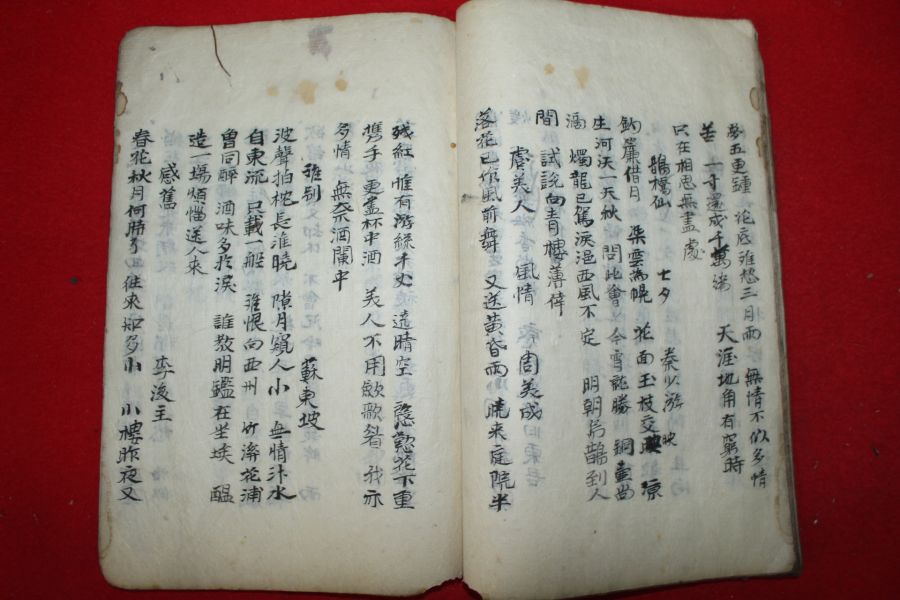 夢五更鍾 花底離愁三月雨 無情不似多情
苦 一寸還成千萬縷 天涯地角有窮時
只在相思無盡處
鵲橋仙 七夕 秦少游
鉤簾借月 染雲爲幌 花面玉枝交映 涼
生河漢一天秋 問此會今霄孰勝 銅壺尚
滴 燭龍已駕 淚浥西風不定 明朝烏鵲到人
間 試說向靑樓薄倖
虞美人 風情 周美成
落花已作風前舞 又送黃昏雨 曉來庭院半
殘紅 惟有游絲千丈 遶晴空 慇懃花下重
携手 更盡杯中酒 美人不用歛歌眉 我亦
多情 無奈酒闌中
離別 蘇東坡
波聲拍枕長淮曉 隙月窺人小 無情汴水
自東流 只載一般 淮恨向西州 竹溪花浦
曾同醉 酒味多於淚 誰敎明鑑在坐埃 醞
造一場煩惱送人來
感舊 李後主
春花秋月何時了 往來知多小 小樓昨夜又